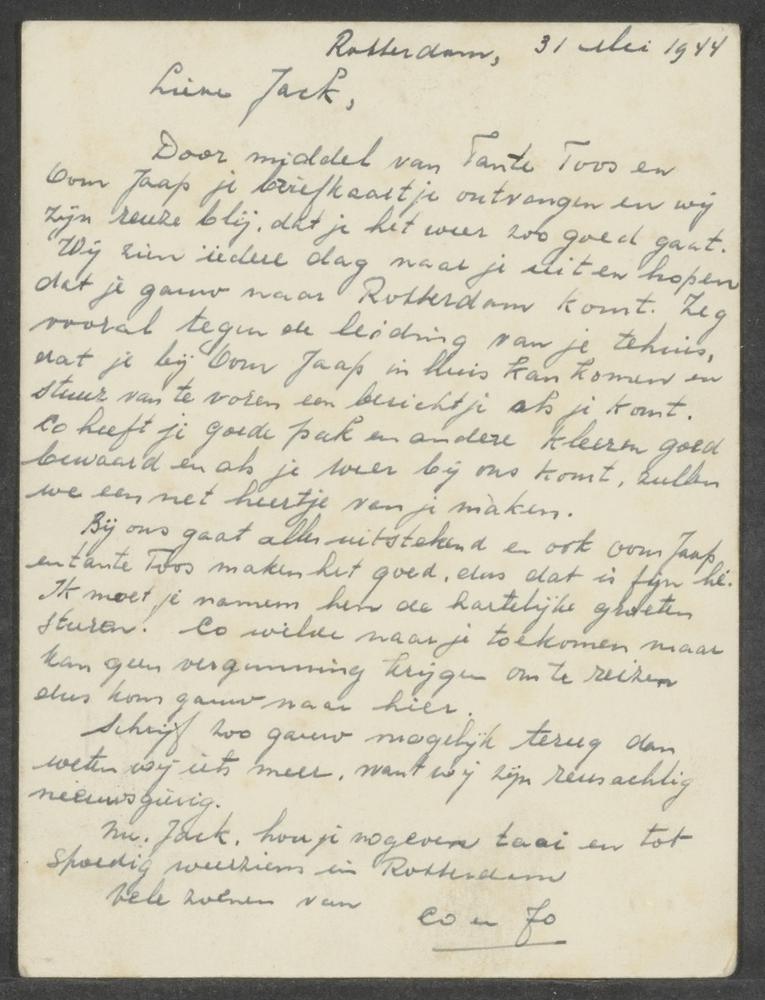 Rotterdam, 31 Mei 1944
Lieve Jack,
Door middel van Tante Toos en
Oom Jaap je briefkaartje ontvangen en wij
zijn reuze blij, dat je het weer zoo goed gaat.
Wij zien iedere dag naar je uit en hopen
dat je gauw naar Rotterdam komt. Zeg
vooral tegen de leiding van je tehuis,
dat je bij Oom Jaap in huis kan komen en
stuur van te voren een berichtje als je komt.
Co heeft je goede pak en andere kleeren goed
bewaard en als je weer bij ons komt, zullen
we een net heertje van je maken.
Bij ons gaat alles uitstekend en ook oom Jaap
en tante Toos maken het goed, dus dat is fijn hé.
Ik moet je namens hen de hartelijke groeten
sturen. Co wilde naar je toekomen maar
kan geen vergunning krijgen om te reizen
dus kom gauw naar hier.
Schrijf zoo gauw mogelijk terug dan
weten wij iets meer, want wij zijn reusachtig
nieuwsgierig.
Nu, Jack, hou je nog even taai en tot
spoedig weerziens in Rotterdam
Vele zoenen van
Co en Jo